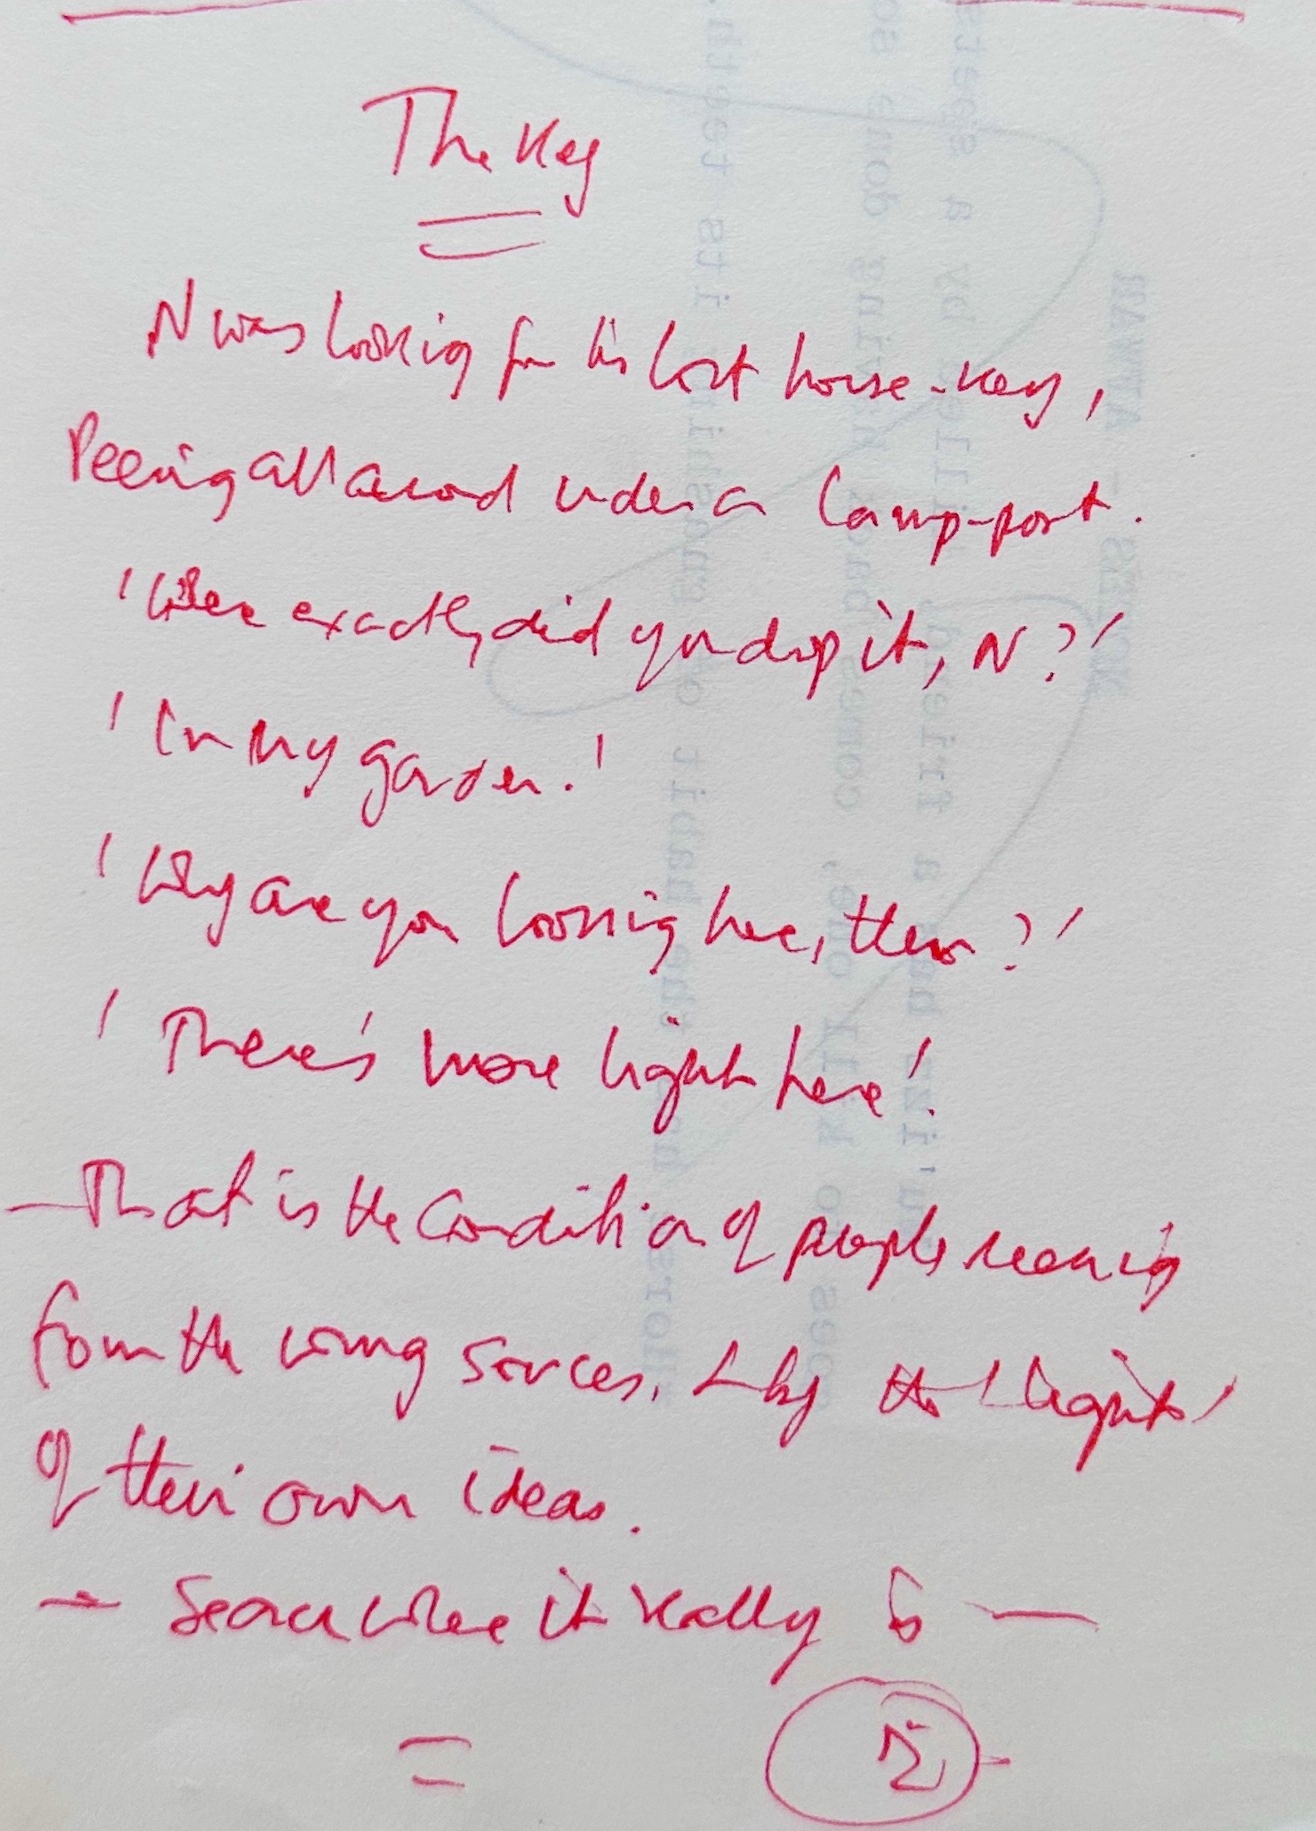 The Key
N was looking for his lost house-key,
Peering all around under a lamp-post.
'Where exactly did you drop it, N?'
'In my garden.'
'Why are you looking here, then?'
'There's more light here'.
— That is the condition of people
from the wrong sources, by the 'light'
of their own ideas.
— Search where it really is —
=